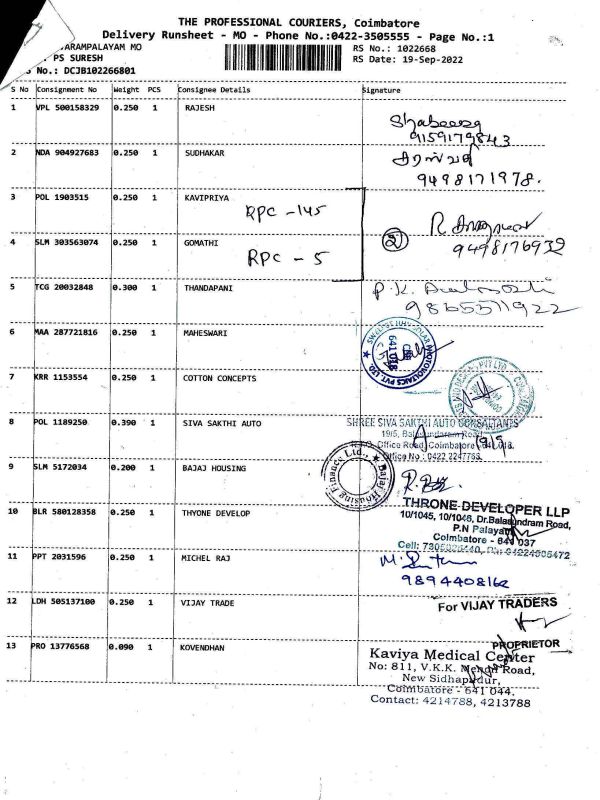 THE PROFESSIONAL COURIERS, Coimbatore
Delivery Runsheet - MO - Phone No.:0422-3505555 - Page No.:1
ARAMPALAYAM MO
RS No.: 1022668
PS SURESH
RS Date: 19-Sep-2022
No.: DCJB102266801
S No Consignment No Weight PCS Consignee Details Signature
1 VPL 500158329 0.250 1 RAJESH
9159179843
2 NDA 904927683 0.250 1 SUDHAKAR
சரஸ்வதி
9498171978.
3 POL 1903515 0.250 1 KAVIPRIYA
RPC - 145
4 SLM 303563074 0.250 1 GOMATHI
RPC - 5
2
9498176932
5 TCG 20032848 0.300 1 THANDAPANI
P.K.
9865571922
6 MAA 287721816 0.250 1 MAHESWARI
PHOTOVOLTAICS PVT. LTD.
641 018
7 KRR 1153554 0.250 1 COTTON CONCEPTS
8 POL 1189250 0.390 1 SIVA SAKTHI AUTO
SHREE SIVA SAKTHI AUTO CONSULTANTS
19/5, Balasundaram Road,
Office Road, Coimbatore - 641 018.
Office No : 0422 2247768
19/9
9 SLM 5172034 0.200 1 BAJAJ HOUSING
Bajaj Housing Finance Ltd.,
10 BLR 580128358 0.250 1 THYONE DEVELOP
THRONE DEVELOPER LLP
10/1045, 10/1046, Dr.Balasundram Road,
P.N Palayam
Coimbatore - 641 037
11 PPT 2031596 0.250 1 MICHEL RAJ
9894408162
12 LDH 505137100 0.250 1 VIJAY TRADE
For VIJAY TRADERS
PROPRIETOR
13 PRO 13776568 0.090 1 KOVENDHAN
Kaviya Medical Center
No: 811, V.K.K. Menon Road,
New Sidhapudur,
Coimbatore - 641 044.
Contact: 4214788, 4213788